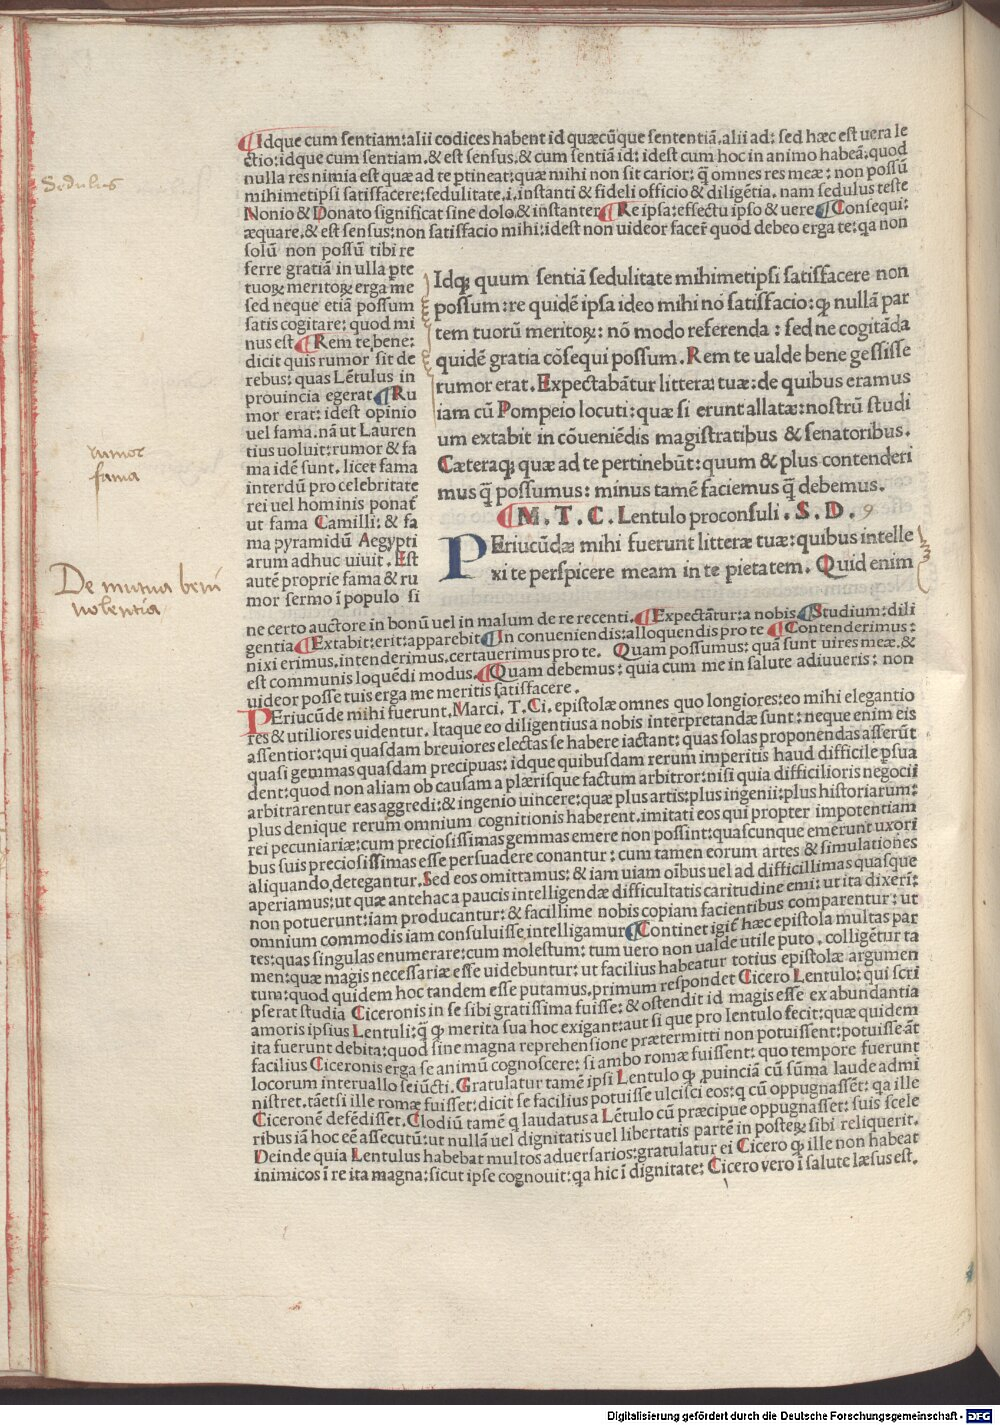 ¶Idque cum sentiam:alii codices habent id quæcūque sententiā.alii ad: sed hæc est uera le
ctio:idque cum sentiam.& est sensus.& cum sentiā id: idest cum hoc in animo habeā.quod
nulla res nimia est quæ ad te ꝑtineat:quæ mihi non sit carior: q̄ omnes res meæ: non possū
mihimetipsi satisfacere:sedulitate.i.instanti & fideli officio & diligētia. nam sedulus teste
Nonio & Donato significat sine dolo.& instanter ¶Re ipsa:effectu ipso & uere ¶Consequi:
æquare.& est sensus:non satisfacio mihi:idest non uideor facer̄ quod debeo erga te:qa non
solū non possū tibi re
ferre gratiā in ulla ꝑte
tuoꝝ meritoꝝ erga me
sed neque etiā possum
satis cogitare: quod mi
nus est ¶Rem te bene:
dicit quis rumor sit de
rebus: quas Lētulus in
prouincia egerat ¶Ru
mor erat: idest opinio
uel fama.nā ut Lauren
tius uoluit:rumor & fa
ma idē sunt. licet fama
interdū pro celebritate
rei uel hominis ponat̄
ut fama Camilli: & fa
ma pyramidū Aegypti
arum adhuc uiuit . Est
autē proprie fama & ru
mor sermo ī populo si
Idqꝫ quum sentiā sedulitate mihimetipsi satisfacere non
possum:re quidē ipsa ideo mihi nō satisfacio: ꝙ nullā par
tem tuorū meritoꝝ: nō modo referenda : sed ne cogitāda
quidē gratia cōsequi possum. Rem te ualde bene gessisse
rumor erat. Expectabātur litteræ tuæ: de quibus eramus
iam cū Pompeio locuti: quæ si erunt allatæ: nostrū studi
um extabit in cōueniēdis magistratibus & senatoribus.
Cæteraqꝫ quæ ad te pertinebūt: quum & plus contenderi
mus q̄ possumus: minus tamē faciemus q̄ debemus.
¶M. T. C. Lentulo proconsuli . S. D. 9
PEriucūdæ mihi fuerunt litteræ tuæ: quibus intelle
xi te perspicere meam in te pietatem. Quid enim
ne certo auctore in bonū uel in malum de re recenti. ¶Expectātur: a nobis ¶Studium: dili
gentia ¶Extabit:erit:apparebit ¶In conueniendis:alloquendis pro te ¶Contenderimus:
nixi erimus.intenderimus.certauerimus pro te. Quam possumus: quā sunt uires meæ.&
est communis loquēdi modus. ¶Quam debemus: quia cum me in salute adiuueris: non
uideor posse tuis erga me meritis satisfacere.
PEriucūde mihi fuerunt. Marci. T. Ci. epistolæ omnes quo longiores:eo mihi elegantio
res & utiliores uidentur. Itaque eo diligentius a nobis interpretandæ sunt: neque enim eis
assentior:qui quasdam breuiores electas se habere iactant: quas solas proponendas asserūt
quasi gemmas quasdam precipuas: idque quibusdam rerum imperitis haud difficile ꝑsua
dent: quod non aliam ob causam a plærisque factum arbitror:nisi quia difficilioris negocii
arbitrarentur eas aggredi:& ingenio uincere:quæ plus artis:plus ingenii:plus historiarum:
plus denique rerum omnium cognitionis haberent.imitati eos qui propter impotentiam
rei pecuniariæ:cum preciosissimas gemmas emere non possint:quascunque emerunt uxori
bus suis preciosissimas esse persuadere conantur : cum tamen eorum artes & simulationes
aliquando detegantur. Sed eos omittamus: & iam uiam oībus uel ad difficillimas quasque
aperiamus:ut quæ antehac a paucis intelligendæ difficultatis caritudine emi: ut ita dixeri̅:
non potuerunt:iam producantur: & facillime nobis copiam facientibus comparentur : ut
omnium commodis iam consuluisse intelligamur ¶Continet igit̄ hæc epistola multas par
tes:quas singulas enumerare:cum molestum: tum uero non ualde utile puto . colligētur ta
men:quæ magis necessariæ esse uidebuntur: ut facilius habeatur totius epistolæ argumen
tum:quod quidem hoc tandem esse putamus.primum respondet Cicero Lentulo: qui scri
pserat studia Ciceronis in se sibi gratissima fuisse: & ostendit id magis esse ex abundantia
amoris ipsius Lentuli: q̄ ꝙ merita sua hoc exigant: aut si que pro lentulo fecit: quæ quidem
ita fuerunt debita:quod sine magna reprehensione prætermitti non potuissent:potuisse āt
facilius Ciceronis erga se animū cognoscere: si ambo romæ fuissent: quo tempore fuerunt
locorum interuallo seiūcti. Gratulatur tamē ipsi Lentulo ꝙ ꝓuinciā cū sūma laude admi
nistret. tāetsi ille romæ fuisset: dicit se facilius potuisse ulcisci eos: q cū oppugnassēt: qa ille
Ciceronē defēdisset. Clodiū tamē q laudatus a Lētulo cū præcipue oppugnasset: suis scele
ribus iā hoc eē assecutū:ut nullā uel dignitatis uel libertatis partē in posteꝝ sibi reliquerit.
Deinde quia Lentulus habebat multos aduersarios:gratulatur ei Cicero ꝙ ille non habeat
inimicos ī re ita magna: sicut ipse cognouit: qa hic ī dignitate: Cicero vero ī salute læsus est.
Sedulus
rumor
fama
De mutua beni
uolentia
Digitalisierung gefördert durch die Deutsche Forschungsgemeinschaft - DFG